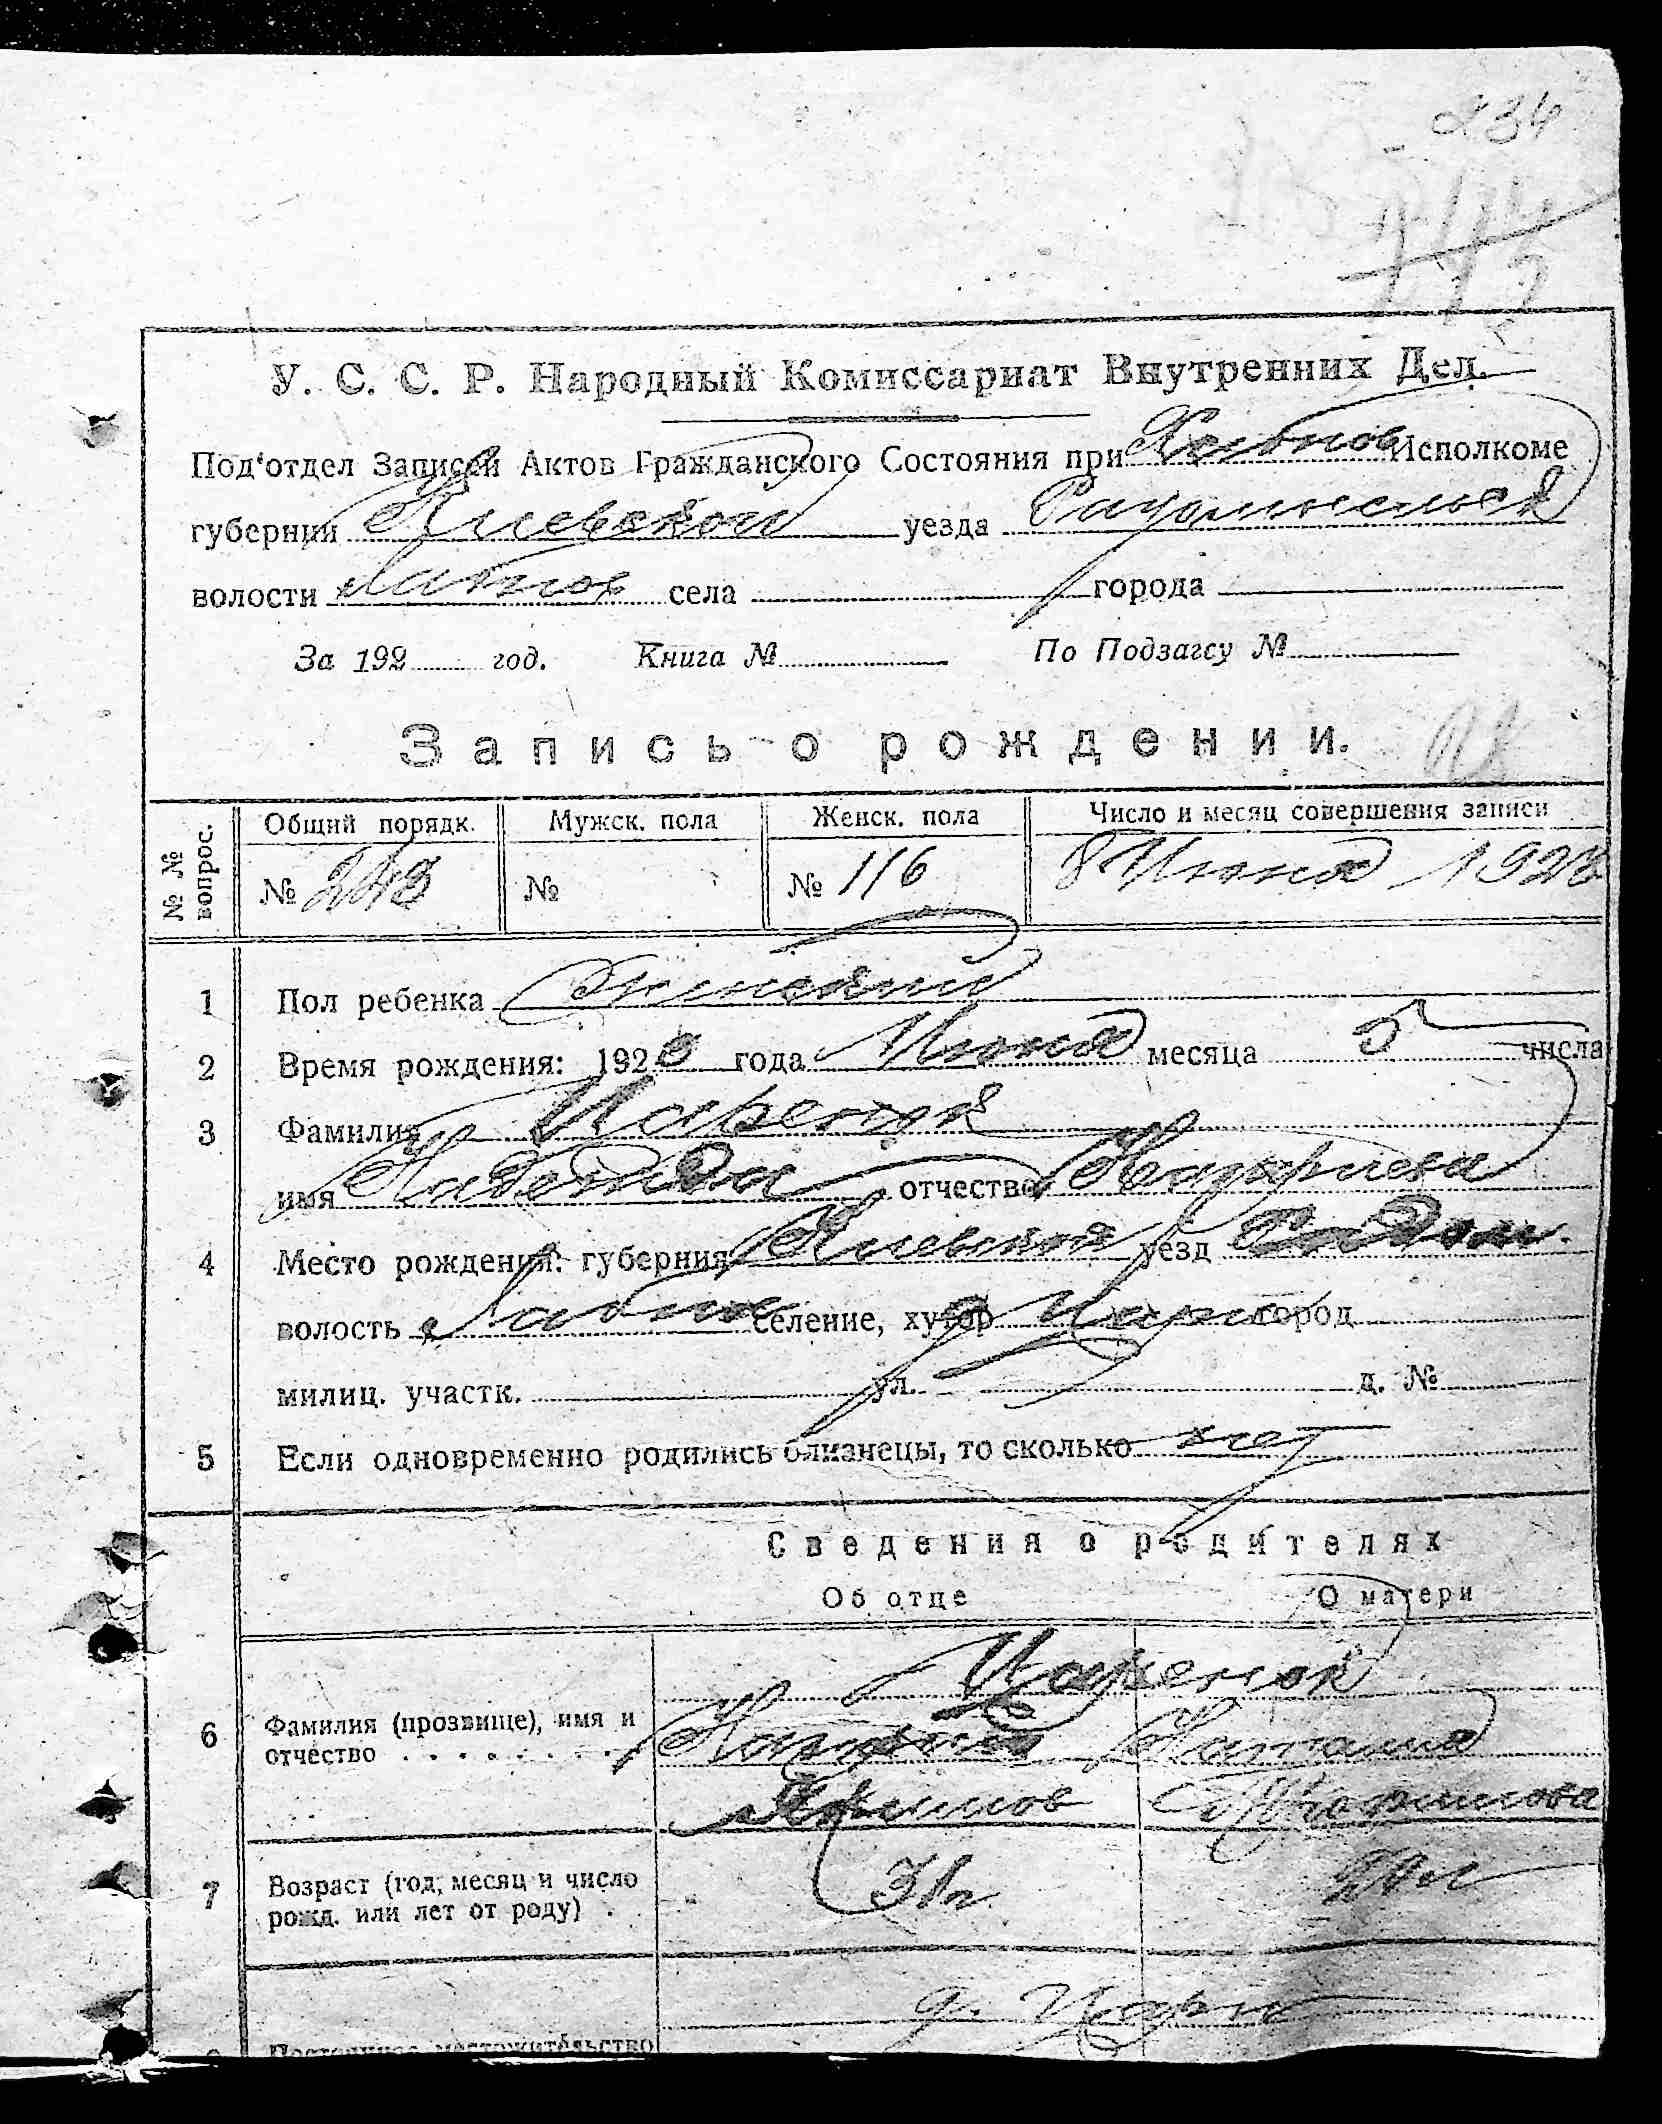 234
У. С. С. Р. Народный Комиссариат Внутренних Дел.
Под'отдел Записей Актов Гражданского Состояния при Хабнов Исполкоме
губернии Киевской уезда Радомысльск
волости Хабнов села города
За 192 год. Книга № По Подзагсу №
Запись о рождении.
№№ вопрос. Общий порядк. Мужск. пола Женск. пола Число и месяц совершения записи
№ 243 № № 116 8 Июня 1923
1 Пол ребенка Женский
2 Время рождения: 1923 года Июня месяца 5 числа
3 Фамилия Царенок
имя Надежда отчество
4 Место рождения: губерния Киевская уезд Радом.
волость Хабнов селение, хутор город
милиц. участк. ул. д. №
5 Если одновременно родились близнецы, то сколько нет
Сведения о родителях
Об отце О матери
Царенок
6 Фамилия (прозвище), имя и отчество Наталия
Трофимова
7 Возраст (год, месяц и число рожд. или лет от роду) 31 л
д.
Постоянное местожительство